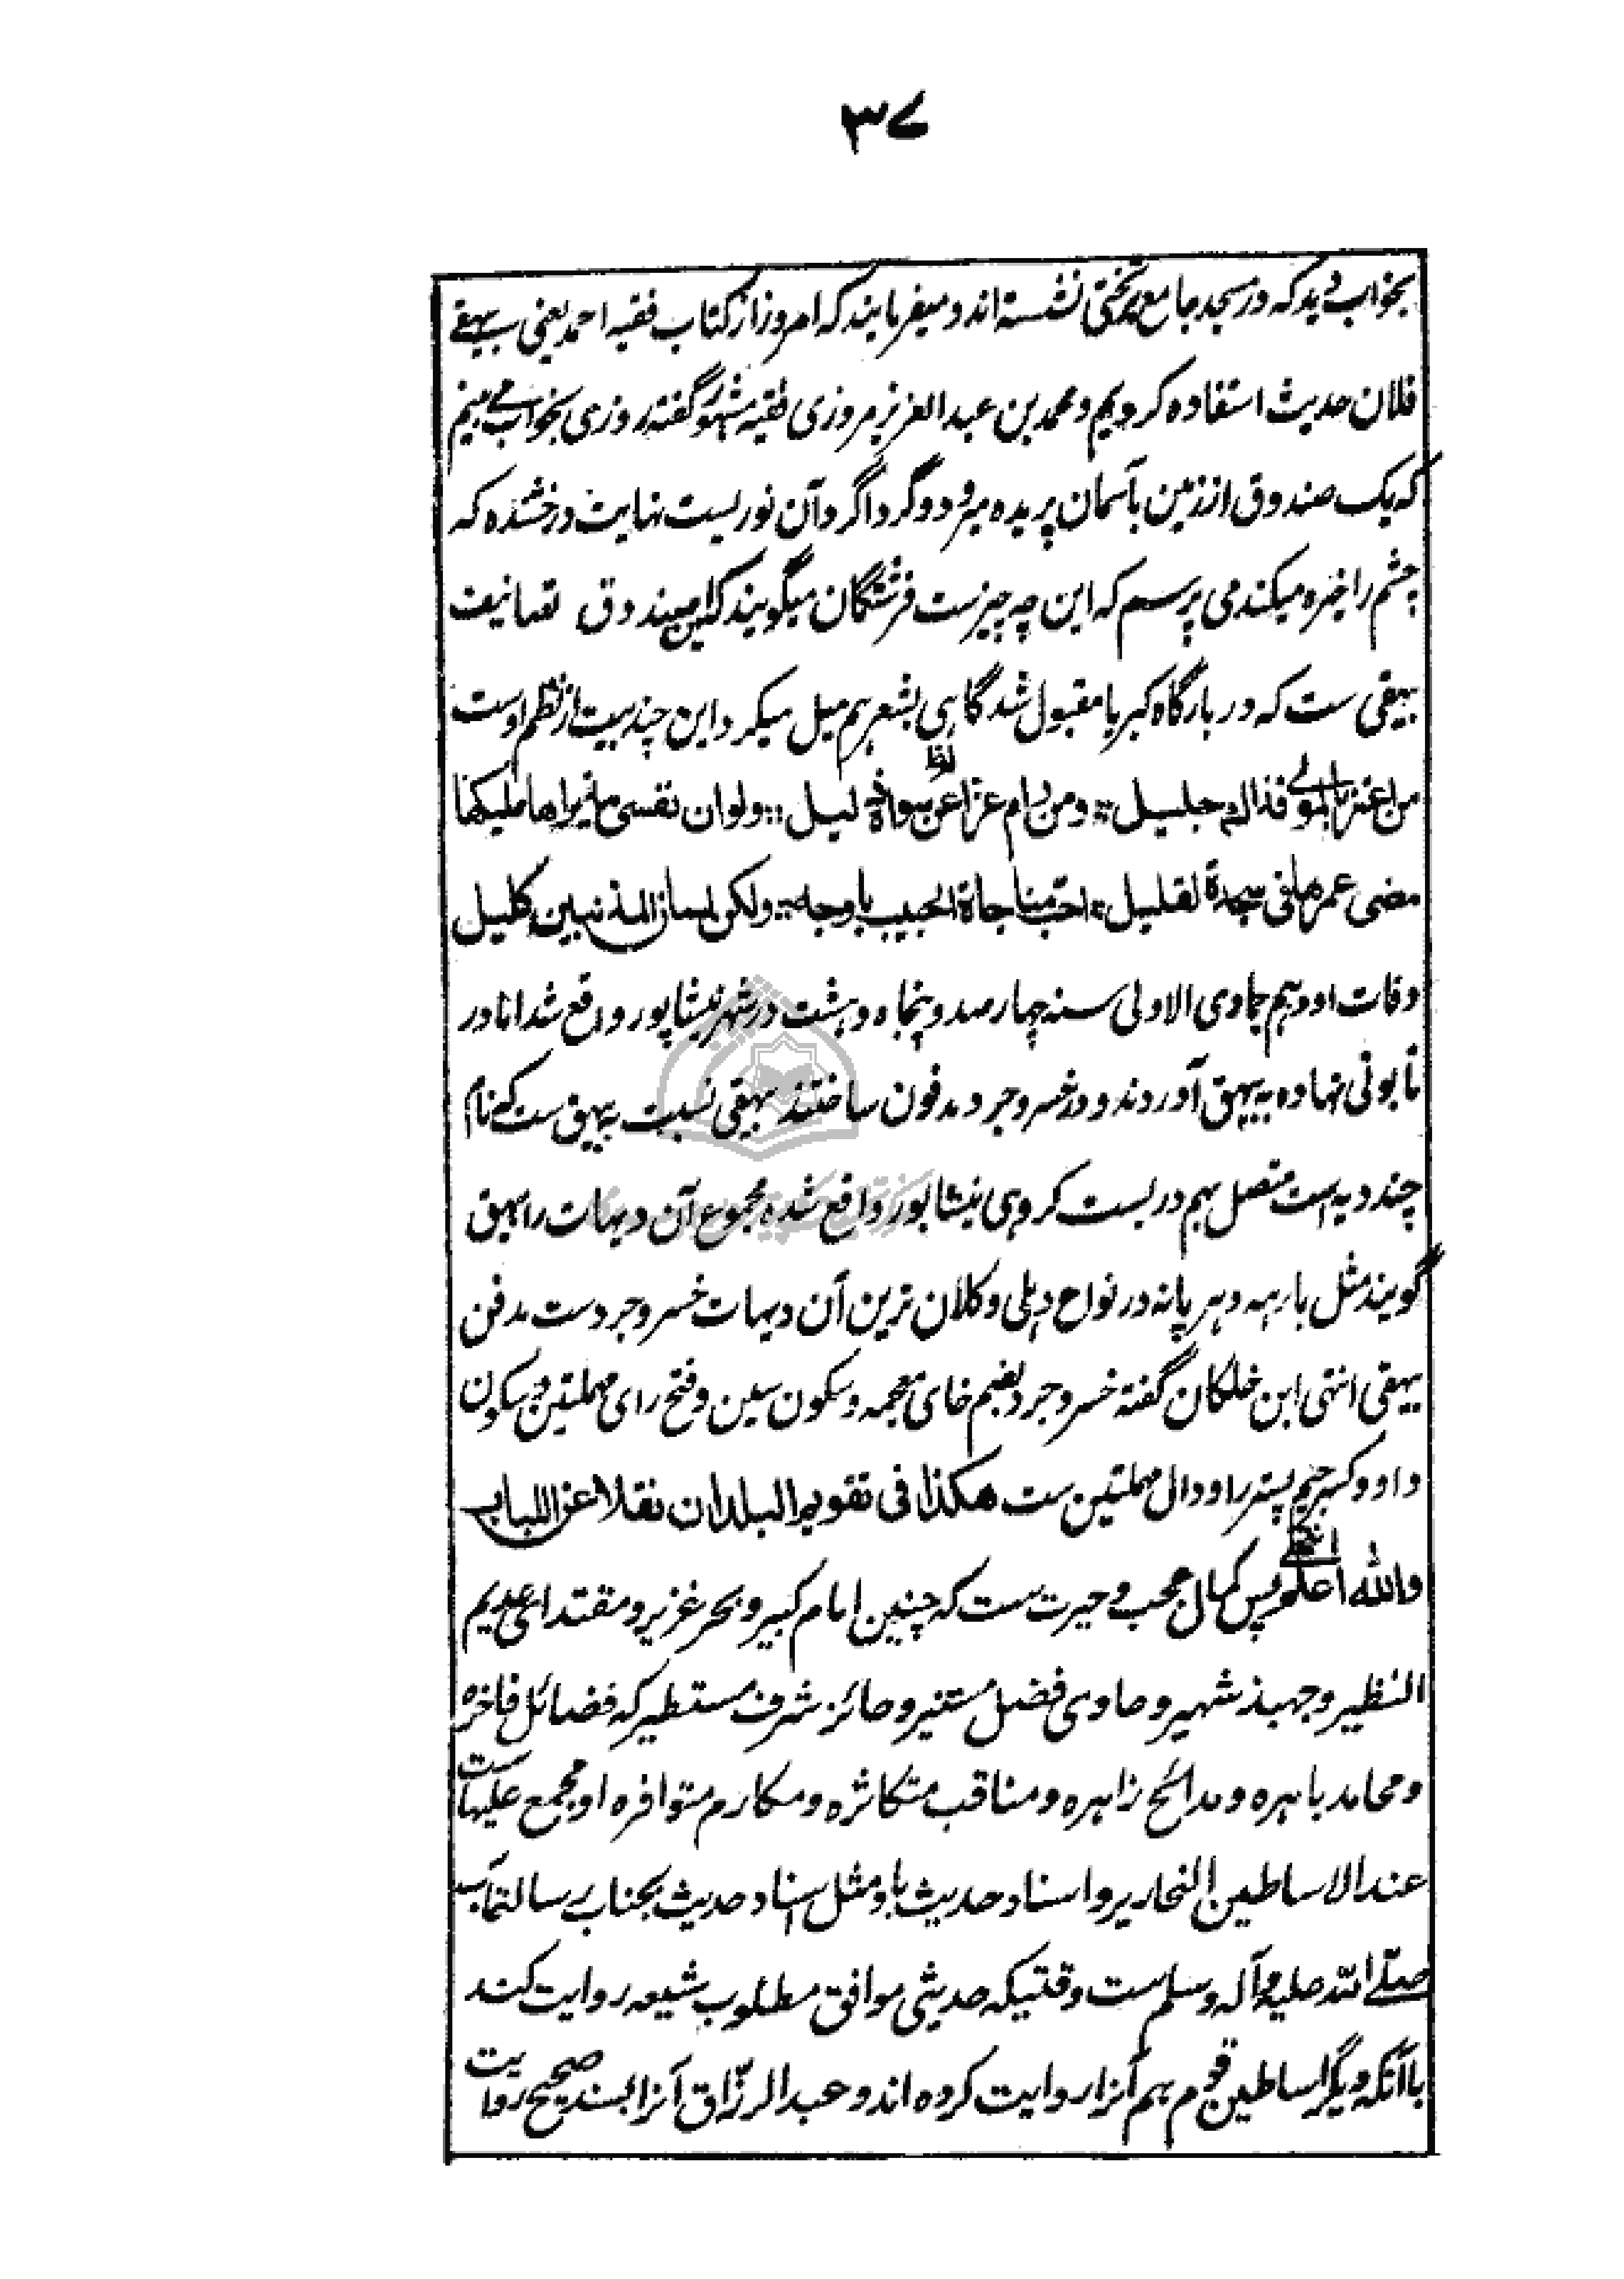 ۳۷
بخواب دید که در مسجد جامع بر تختی نشسته اند و میفرمایند که امروز از کتاب فقیه احمد یعنی بیهقے
فلان حدیث استفاده کردیم و محمد بن عبد العزیز مروزی فقیه مشهور گفته روزی بخواب مے بینم
که یک صندوق از زمین بآسمان پریده میرود و گرداگرد آن نوریست نهایت درخشنده که
چشم را خیره میکند می پرسم که این چه چیزست فرشتگان میگویند که این صندوق تصانیف
بیهقی ست که در بارگاه کبریا مقبول شد گاهی بشعر هم میل میکرد این چند بیت از نظم اوست
من اعتز بالمولى فذاك جليل :: ومن رام عزا عن سواه ذليل :: ولو ان نفسي مذ براها مليكها
مضى عمرها في سجدة لقليل :: احب مناجاة الحبيب باوجه :: ولكن لسان المذنبين كليل
وفات او دهم جمادی الاولی سنه چهار صد و پنجاه و هشت در شهر نیشاپور واقع شد اما در
تابوتی نهاده به بیهق آوردند و در خسروجرد مدفون ساختند بیهقی نسبت به بیهق ست که نام
چند دیه است متصل بهم در بست کروهی نیشاپور واقع شده مجموع آن دیهات را بیهق
گویند مثل بارهه و هریانه در نواح دهلی و کلان ترین آن دیهات خسروجردست مدفن
بیهقی انتهی ابن خلکان گفته خسروجرد بضم خای معجمه و سکون سین و فتح رای مهملتین و سکون
واو و کسر جیم پستر را و دال مهملتین ست هكذا في تقويم البلدان نقلا عن اللباب
والله اعلم انتهى پس کمال عجب و حیرت ست که چنین امام کبیر و بحر غزیر و مقتدای عدیم
النظیر و جهبذ شهیر و حاوی فضل مستنیر و حائز شرف مستطیر که فضائل فاخره
و محامد باهره و مدائح زاهره و مناقب متکاثره و مکارم متوافره او مجمع علیهاست
عند الاساطین النحاریر و اسناد حدیث باو مثل اسناد حدیث بجناب رسالتمآب
صلے الله علیه وآله وسلم ست وقتیکه حدیثی موافق مطلوب شیعه روایت کند
با آنکه دیگر اساطین قوم هم آنرا روایت کرده اند و عبد الرزّاق آنرا بسند صحیح روایت